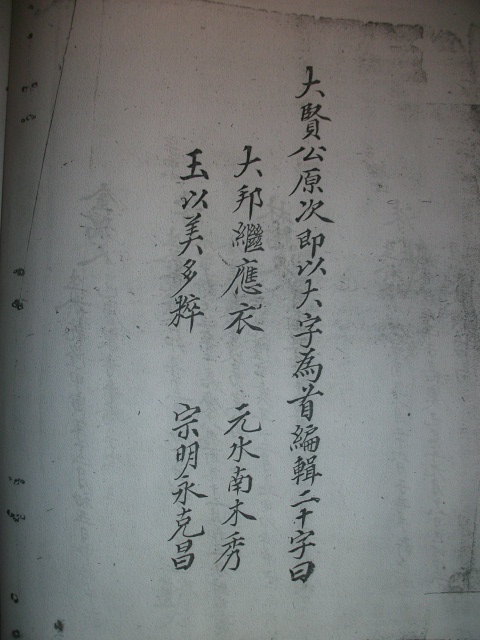 大賢公原次即以大字為首編輯二十字曰
大邦繼應衣 元水南木秀
玉以美多粹 宗明永克昌